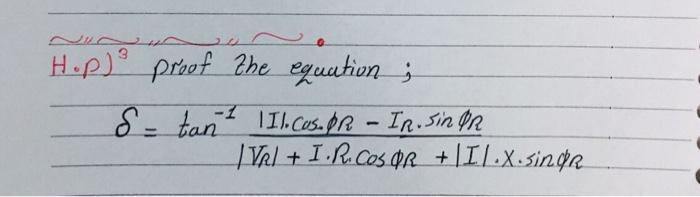 H.p)³ proof the equation ;
δ = tan⁻¹ |I|.cos.ϕR − IR.sin ϕR
|VR| + I.R.cos ϕR + |I|.X.sin ϕR